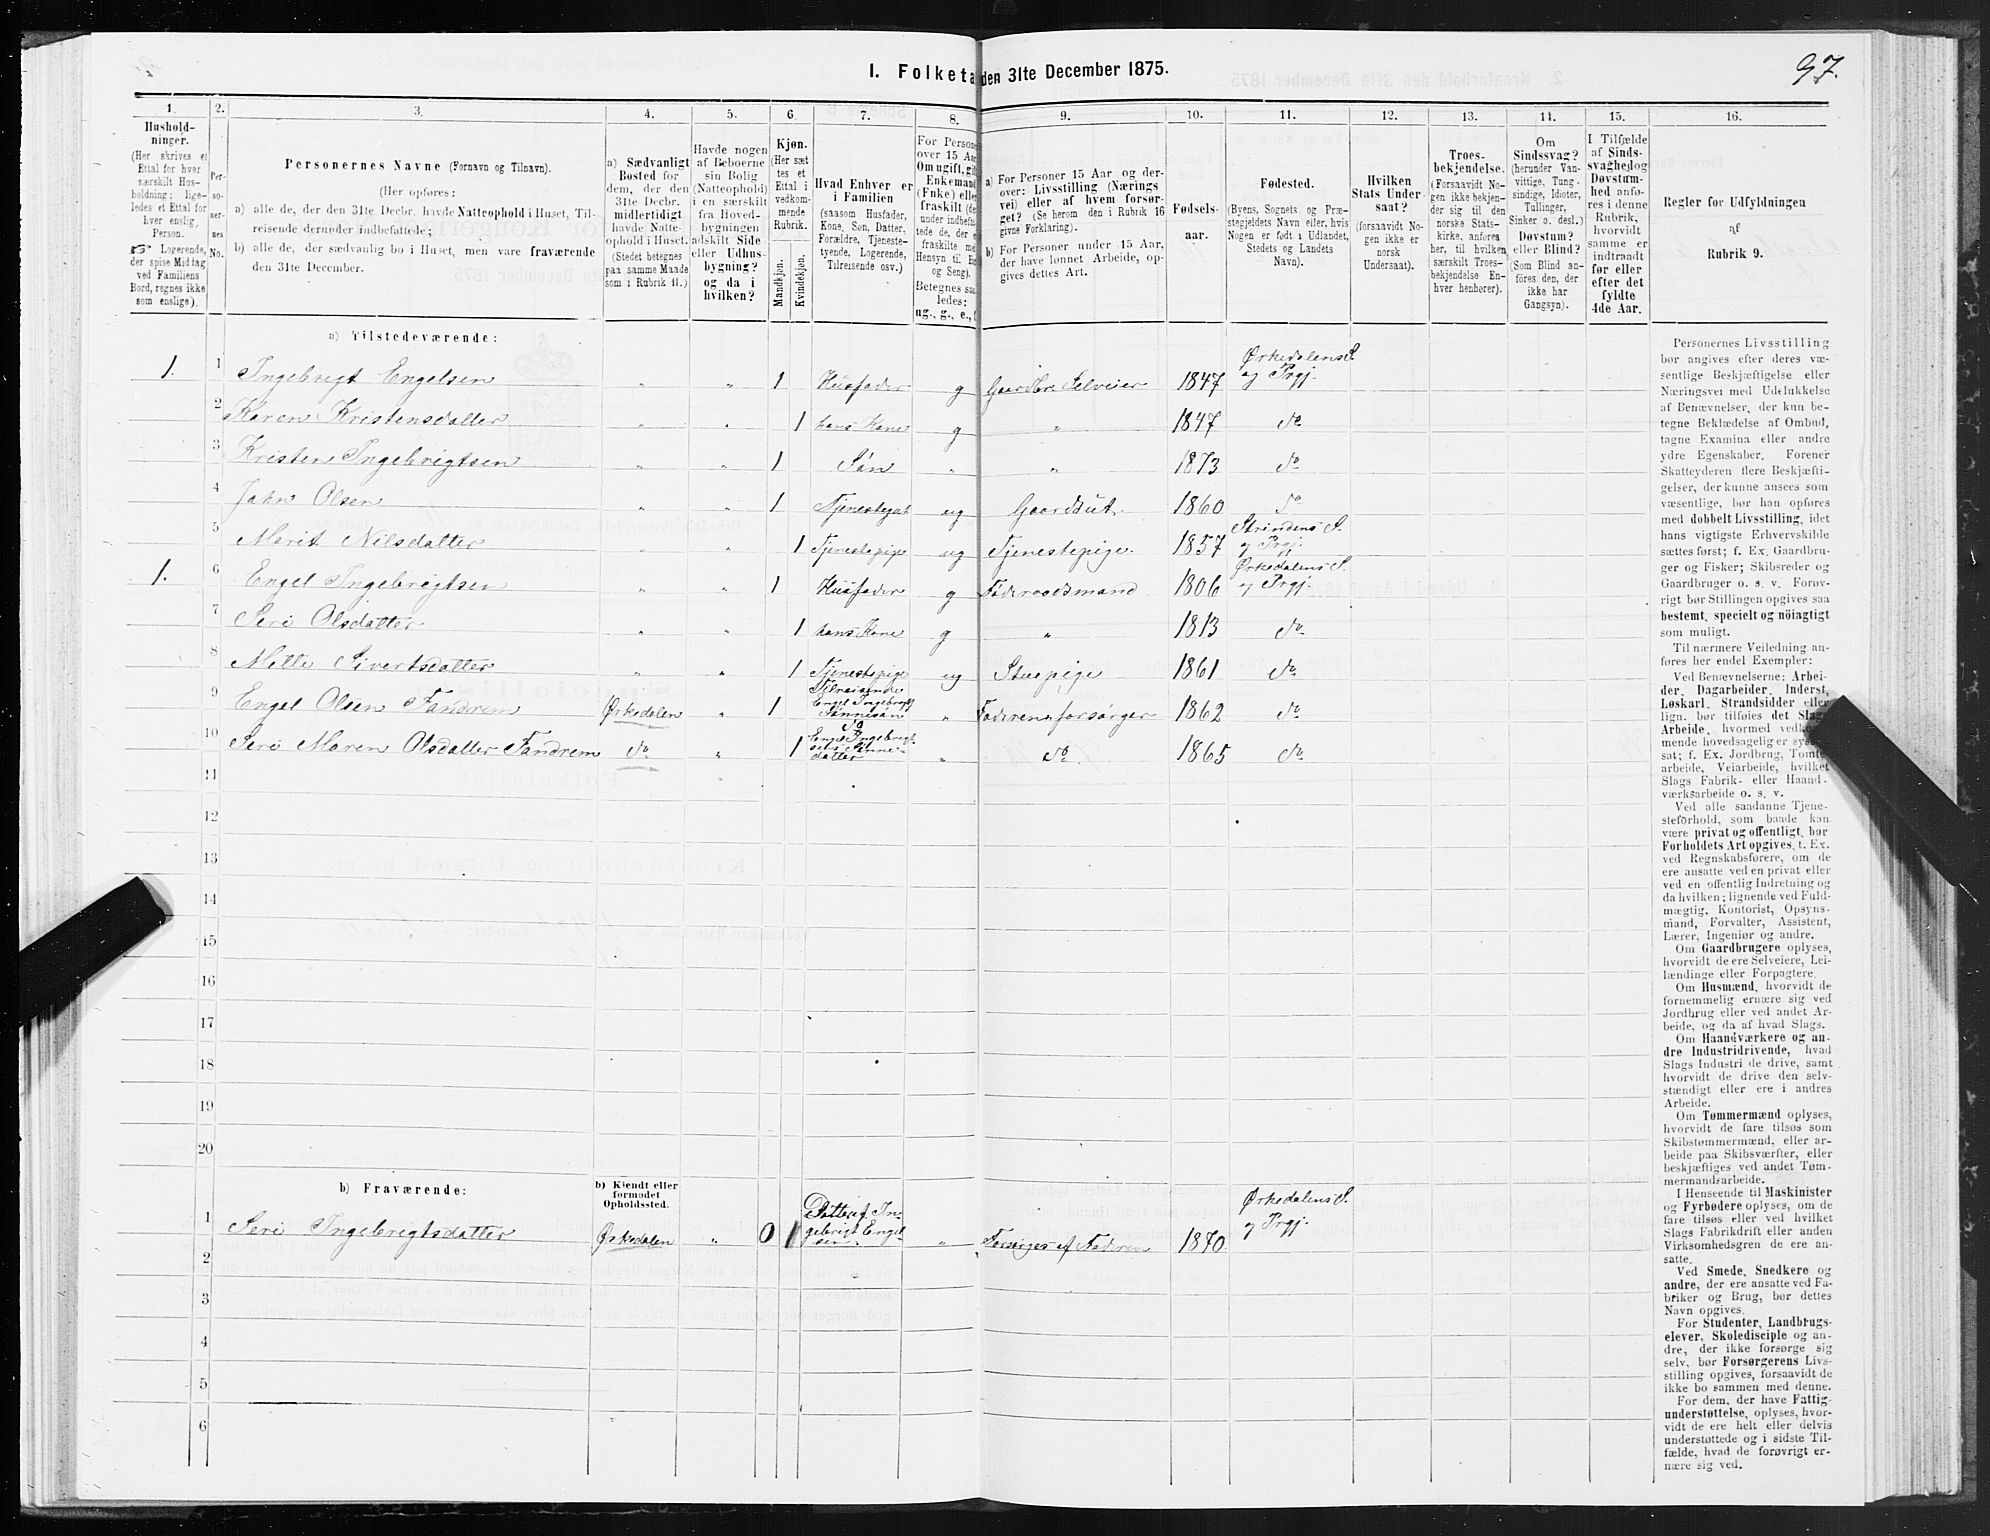 97.
I. Folketa den 31te December 1875.
1.
2.
3.
4.
5.
6.
7.
8.
9.
10.
11.
12.
13.
14.
15.
16.
Hushold-
ninger.
(Her skrives et
Ettal for hver
særskilt Hus-
holdning; lige-
ledes et Ettal for
hver enslig,
Person.
Logerende,
der spise Middag
ved Familiens
Bord, regnes ikke
som enslige).
Per-
so-
ner-
nes
No.
Personernes Navne (Fornavn og Tilnavn).
(Her opføres:
a) alle de, der den 31te Decbr. havde Natteophold i Huset, Til-
reisende derunder indbefattede;
b) alle de, der sædvanlig bo i Huset, men vare fraværende
den 31te December.
a) Sædvanligt
Bosted for
dem, der den
31te Decbr.
midlertidigt
havde Natte-
ophold i Huset.
(Stedet betegnes
paa samme Maade
som i Rubrik 11.)
Havde nogen
af Beboerne
sin Bolig
(Natteophold)
i en særskilt
fra Hoved-
bygningen
adskilt Side
eller Udhus-
bygning?
og da i
hvilken?
Kjøn.
(Her sæt
tes et
Ettal i
vedkom-
mende
Rubrik.
Mandkjøn.
Kvindekjøn.
Hvad Enhver er
i Familien
(saasom Husfader,
Kone, Søn, Datter,
Forældre, Tjeneste-
tyende, Logerende,
Tilreisende osv.)
For Person
over 15 Aa
Om ugift, gif
Enkemand
(Enke) elle
fraskilt (de
under indbefat-
tede de, der e
fraskilte m
Hensyn til Bo
og Seng).
Betegnes saa
ledes:
ug., g., e., f
a) For Personer 15 Aar og der-
over: Livsstilling (Nærings
vei) eller af hvem forsør-
get? (Se herom den i Rubrik 16
givne Forklaring).
b) For Personer under 15 Aar,
der have lønnet Arbeide, op-
gives dettes Art.
Fødsels-
aar.
Fødested.
(Byens, Sognets og Præ-
stegjeldets Navn, eller, hvis
Nogen er født i Udlandet,
Stedets og Landets
Navn).
Hvilken
Stats Under-
saat?
(forsaavidt No-
gen ikke er
norsk
Undersaat).
Troes-
bekjendelse.
(Forsaavidt No-
gen ikke bekjen-
der sig til den
norske Stats-
kirke, anføres
her, til hvilken
særskilt Troes-
bekjendelse En-
hver henhører).
Om
Sindssvag?
(herunder Van-
vittige, Tung-
sindige, Idioter,
Tullinger,
Sinker o. desl.)
Døvstum?
eller Blind?
(Som Blind an-
føres den, der
ikke har
Gangsyn).
I Tilfælde
af Sinds-
svaghed og
Døvstum-
hed anfø-
res i denne
Rubrik,
hvorvidt
samme er
indtraadt
før eller
efter det
fyldte
4de Aar.
Regler for Udfyldningen
af
Rubrik 9.
a) Tilstedeværende:
1. 1 Ingebrigt Engelsen „ „ 1 Husfader g Gaardbr. Selveier 1847 Ørkedalens S. og Prgj.
2 Karen Kristensdatter „ „ 1 hans Kone g „ 1847 do
3 Kristen Ingebrigtsen „ „ 1 Søn „ „ 1873 do
4 John Olsen „ „ 1 Tjenestegut ug Gaardsut. 1860 do
5 Marit Nilsdatter „ „ 1 Tjenestepige ug Tjenestepige. 1857 Strindens S. og Prgj.
1. 6 Engel Ingebrigtsen „ „ 1 Husfader g Føderaadsmand 1806 Ørkedalens S. og Prgj.
7 Seri Olsdatter „ „ 1 hans Kone g „ 1813 do
8 Mette Sivertsdatter „ „ 1 Tjenestepige ug Stuepige 1861 do
9 Engel Olsen Fandrem Ørkedalen „ 1 Tilreisende Engel Ingebrigts Sønnesøn „ Faderen forsørger 1862 do
10 Seri Maren Olsdatter Fandrem do „ 1 do Engel Ingebrigtsens Sønnedatter „ do. 1865 do
11 „
12
13
14
15
16
17
18
19
20
b) Fraværende:
b) Kjendt eller
formodet
Opholdssted.
1 Seri Ingebrigtsdatter Ørkedalen „ 0 1 Datter af Ingebrigt Engelsen „ Forsørges af Faderen 1870 Ørkedalens S. og Prgj.
2
3
4
5
6
Personernes Livsstilling
bør angives efter deres væ-
sentlige Beskjæftigelse eller
Næringsvei med Udelukkelse
af Benævnelser, der kun be-
tegne Beklædelse af Ombud,
tagne Examina eller andre
ydre Egenskaber. Forener
Skatteyderen flere Beskjæfti-
gelser, der kunne ansees som
væsentlige, bør han opføres
med dobbelt Livsstilling, idet
hans vigtigste Erhvervskilde
sættes først; f. Ex. Gaardbru-
ger og Fisker; Skibsreder og
Gaardbruger o. s. v. Forøv-
rigt bør Stillingen opgives saa
bestemt, specielt og nöiagtigt
som muligt.
Til nærmere Veiledning an-
føres her endel Exempler:
Ved Benævnelserne: Arbei-
der, Dagarbeider, Inderst,
Løskarl, Strandsidder eller
lign. bør tilføies det Slags
Arbeide, hvormed vedkom-
mende hovedsagelig er syssel
sat; f. Ex. Jordbrug, Tomte
arbeide, Veiarbeide, hvilket
Slags Fabrik- eller Haand-
værksarbeide o. s. v.
Ved alle saadanne Tjene-
steforhold, som baade kan
være privat og offentligt, bør
Forholdets Art opgives, t. Ex.
ved Regnskabsførere, om de
ere ansatte ved en privat eller
ved en offentlig Indretning og
da hvilken; lignende ved Fuld-
mægtig, Kontorist, Opsyns-
mand, Forvalter, Assistent,
Lærer, Ingeniør og andre.
Om Gaardbrugere oplyses,
hvorvidt de ere Selveiere, Lei-
lændinge eller Forpagtere.
Om Husmænd, hvorvidt de
fornemmelig ernære sig ved
Jordbrug eller ved andet Ar-
beide, og da af hvad Slags.
Om Haandværkere og an-
dre Industridrivende, hvad
Slags Industri de drive, samt
hvorvidt de drive den selv-
stændigt eller ere i andres
Arbeide.
Om Tømmermænd oplyses,
hvorvidt de fare tilsøs som
Skibstømmermænd, eller ar-
beide paa Skibsværfter, eller
beskjæftiges ved andet Tøm-
mermandsarbeide.
I Henseende til Maskinister
og Fyrbødere oplyses, om de
fare tilsøs eller ved hvilket
Slags Fabrikdrift eller anden
Virksomhedsgren de ere an-
satte.
Ved Smede, Snedkere og
andre, der ere ansatte ved Fa-
briker og Brug, bør dettes
Navn opgives.
For Studenter, Landbrugs-
elever, Skoledisciple og an-
dre, der ikke forsørge sig
selv, bør Forsørgerens Livs-
stilling opgives, forsaavidt de
ikke bo sammen med denne.
For dem, der have Fattig-
understøttelse, oplyses, hvor-
vidt de ere helt eller delvis
understøttede og i sidste Til-
fælde, hvad de forøvrigt er-
nære sig ved.